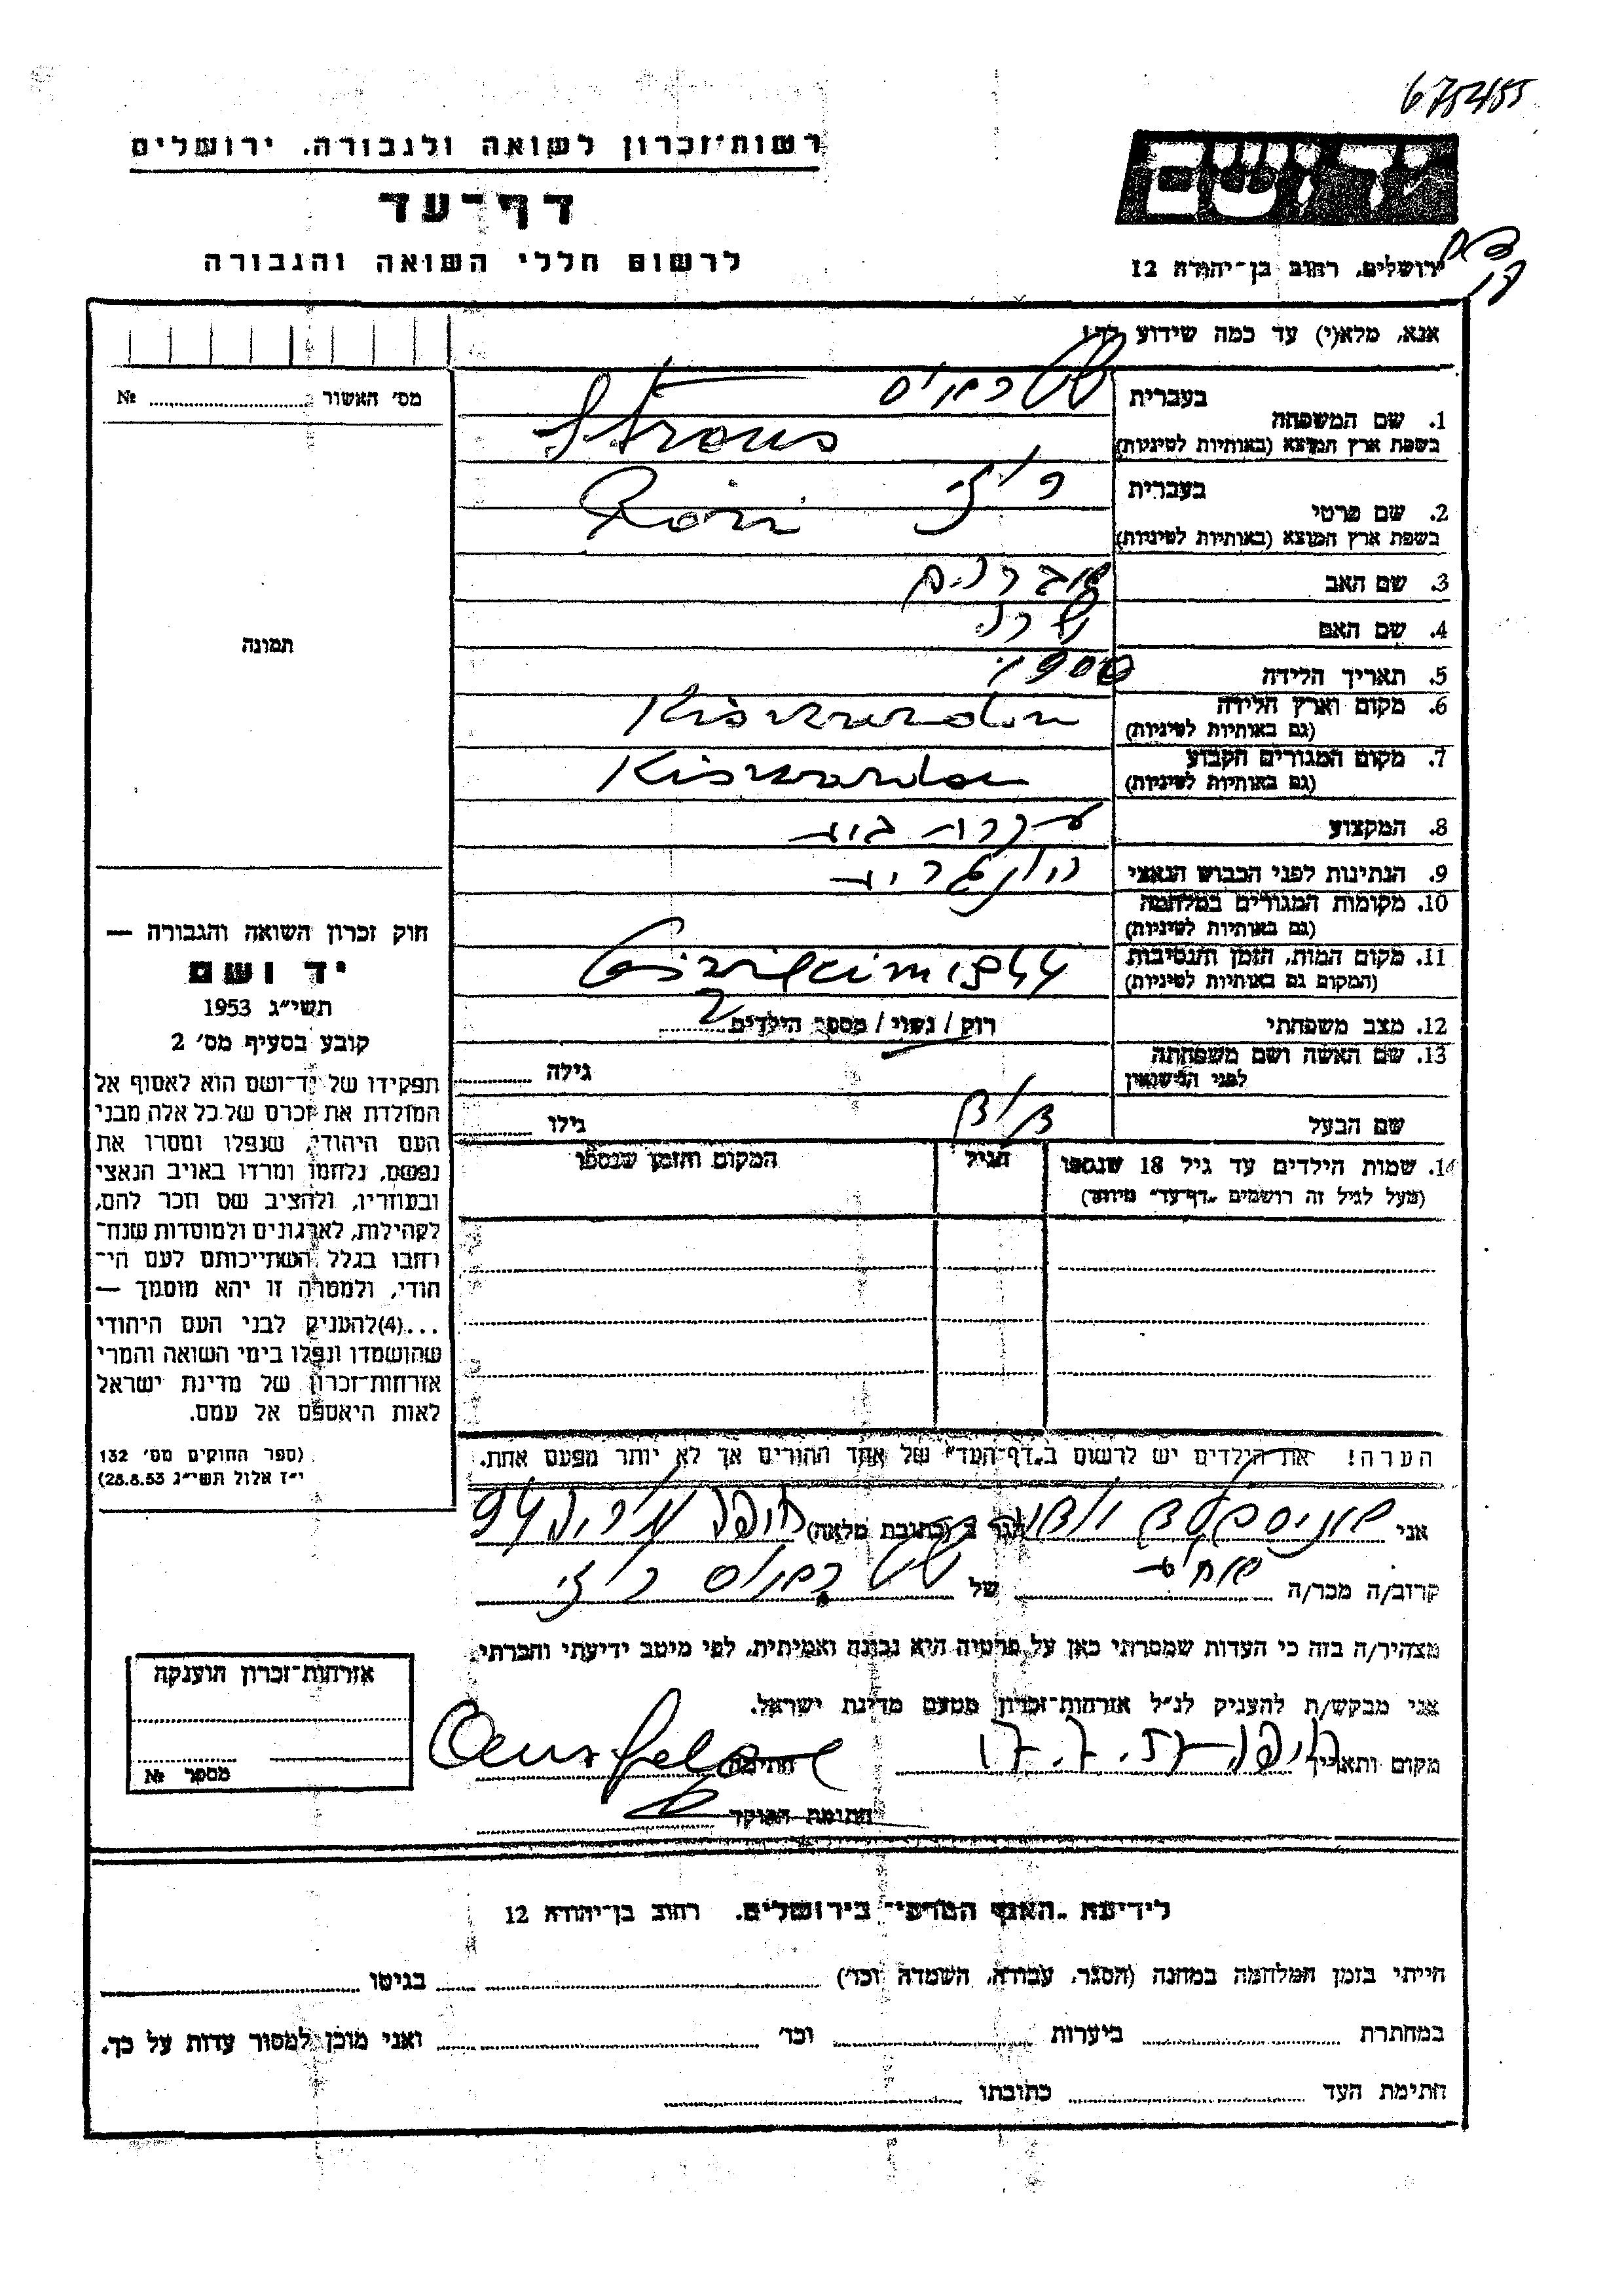 675455
רשות־זכרון לשואה ולגבורה, ירושלים
דף־עד
לרשום חללי השואה והגבורה
יד ושם
ירושלים, רחוב בן־יהודה 12
אנא, מלא(י) עד כמה שידוע לך!
מס' האשור № 
בעברית שטראוס
1. שם המשפחה
בשפת ארץ המוצא (באותיות לטיניות) Strous
בעברית רוזי
2. שם פרטי
בשפת ארץ המוצא (באותיות לטיניות) Rozi
3. שם האב אברהם
4. שם האם שרה
5. תאריך הלידה 1900
6. מקום וארץ הלידה Kisvarda
(גם באותיות לטיניות)
7. מקום המגורים הקבוע Kisvarda
(גם באותיות לטיניות)
8. המקצוע עקרת בית
9. הנתינות לפני הכבוש הנאצי הונגרית
10. מקומות המגורים במלחמה
(גם באותיות לטיניות)
11. מקום המות, הזמן והנסיבות 1944
(המקום גם באותיות לטיניות)
12. מצב משפחתי רוק / נשוי / מספר הילדים 2
13. שם האשה ושם משפחתה גילה
לפני הנישואין
שם הבעל גילו
14. שמות הילדים עד גיל 18 שנספו הגיל המקום והזמן שנספו
(מעל לגיל זה רושמים "דף־עד" מיוחד)
הערה! את הילדים יש לרשום ב"דף־העד" של אחד ההורים אך לא יותר מפעם אחת.
תמונה
חוק זכרון השואה והגבורה —
יד ושם
תשי״ג 1953
קובע בסעיף מס' 2
תפקידו של יד־ושם הוא לאסוף אל
המולדת את זכרם של כל אלה מבני
העם היהודי, שנפלו ומסרו את
נפשם, נלחמו ומרדו באויב הנאצי
ובעוזריו, ולהציב שם וזכר להם,
לקהילות, לארגונים ולמוסדות שנח־
רחבו בגלל השתייכותם לעם הי־
הודי, ולמטרה זו יהא מוסמך —
...(4)להעניק לבני העם היהודי
שהושמדו ונפלו בימי השואה והמרי
אזרחות־זכרון של מדינת ישראל
לאות היאספם אל עמם.
(ספר החוקים מס' 132
י״ז אלול תשי״ג 28.8.53)
אני הגר ב (כתובת מלאה) חיפה
קרוב/ה מכר/ה אחות של שטראוס רוזי
מצהיר/ה בזה כי העדות שמסרתי כאן על פרטיה היא נכונה ואמיתית, לפי מיטב ידיעתי והכרתי.
אני מבקש/ת להעניק לנ״ל אזרחות־זכרון מטעם מדינת ישראל.
מקום ותאריך חיפה 17.7.57 חתימה
חתימת הפוקד
אזרחות־זכרון הוענקה
מספר №
לידיעת "האגף המדעי" בירושלים, רחוב בן־יהודה 12
הייתי בזמן המלחמה במחנה (הסגר, עבודה, השמדה וכד') בגיטו
במחתרת ביערות וכד' ואני מוכן למסור עדות על כך.
חתימת העד כתובתו